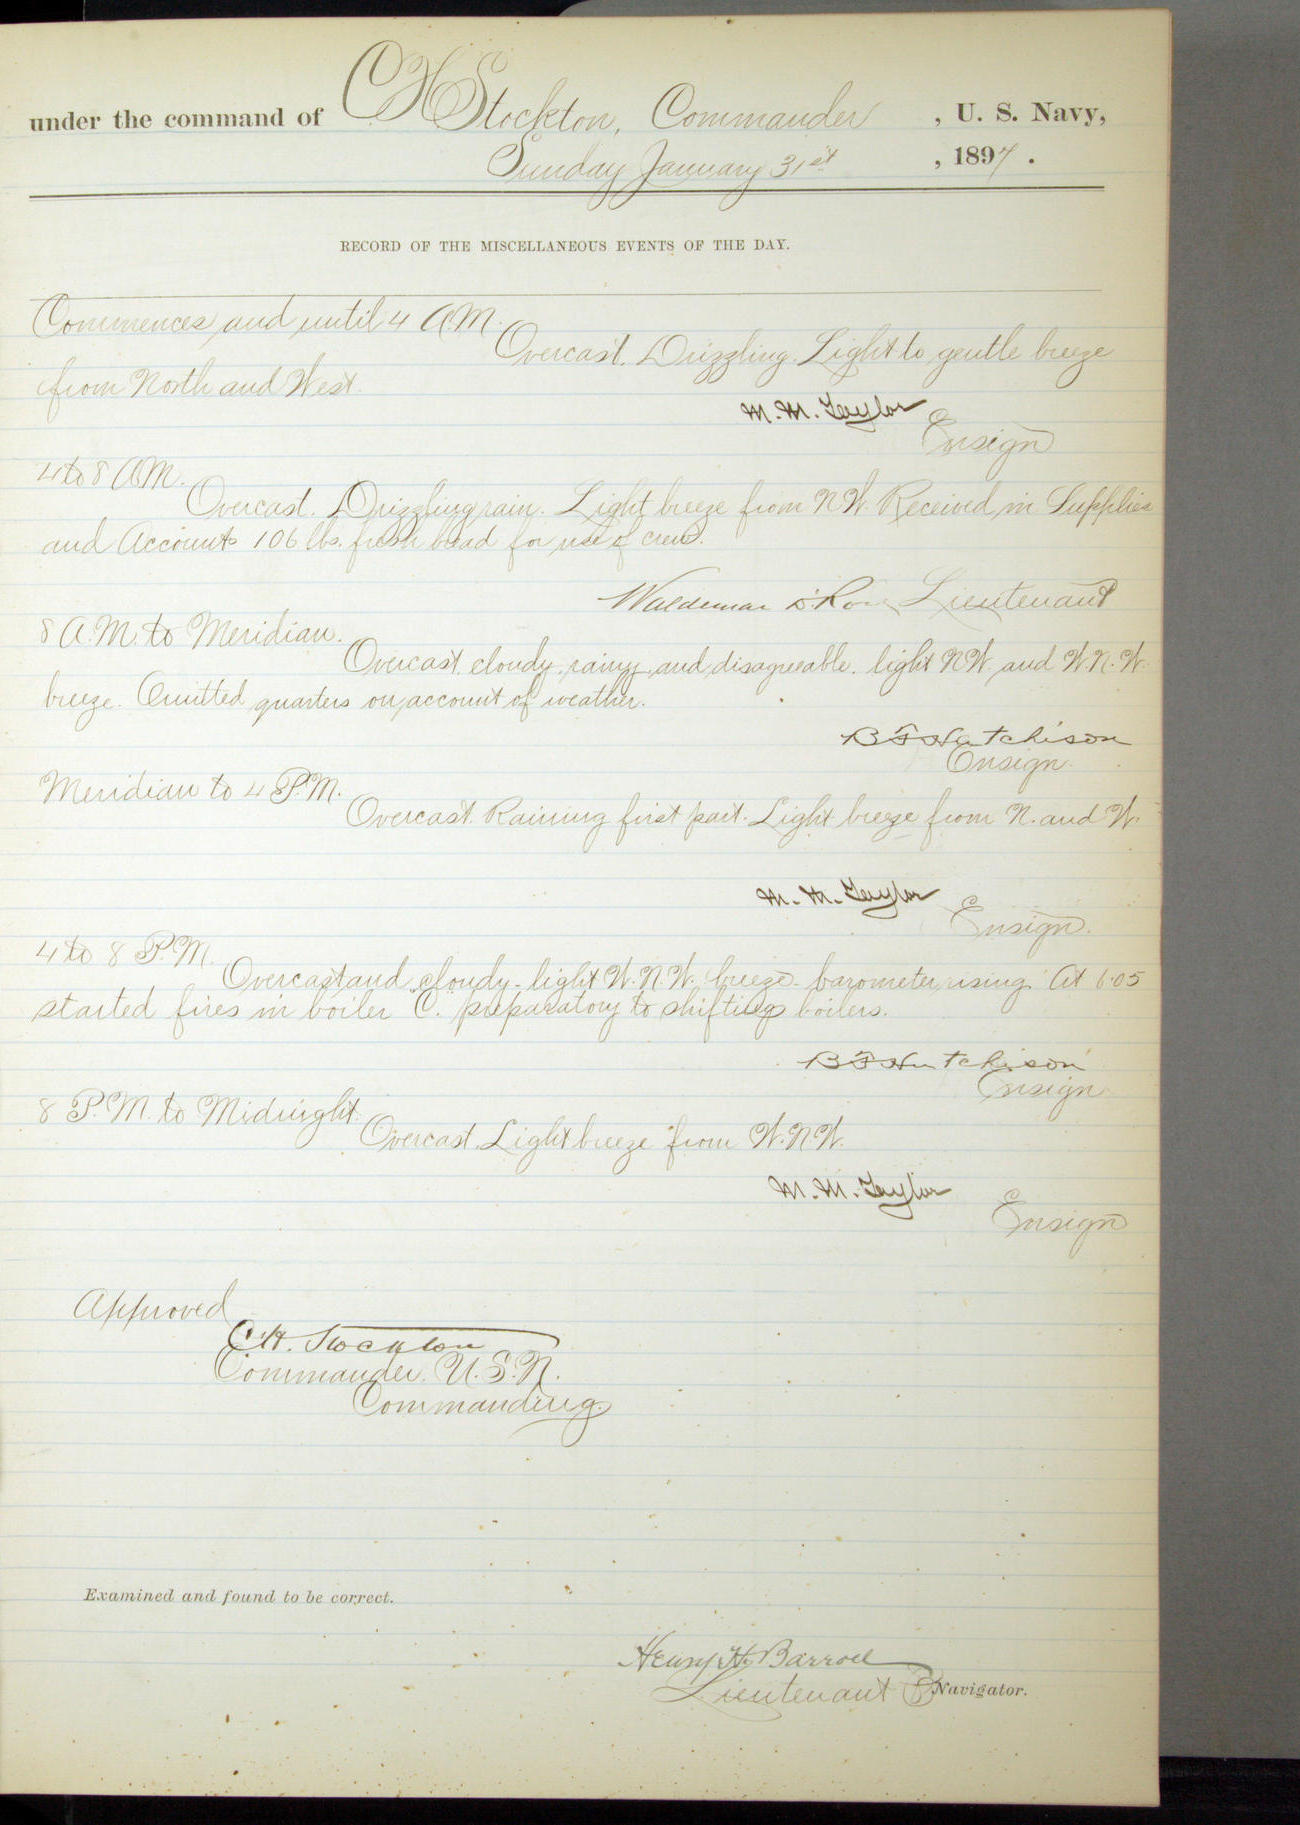 under the command of C H Stockton, Commander , U. S. Navy,
Sunday January 31st , 1897 .
RECORD OF THE MISCELLANEOUS EVENTS OF THE DAY.
Commences and until 4 A.M.
Overcast. Drizzling. Light to gentle breeze
from North and West.
M. M. Taylor
Ensign
4 to 8 A.M.
Overcast. Drizzling rain. Light breeze from N.W. Received in Supplies
and Accounts 106 lbs. fresh bread for use of crew.
Waldemar D. Rose Lieutenant
8 A.M. to Meridian.
Overcast, cloudy, rainy, and disagreeable. light N.W. and W.N.W.
breeze. Omitted quarters on account of weather.
B F Hutchison
Ensign.
Meridian to 4 P.M.
Overcast. Raining first part. Light breeze from N. and W.
M. M. Taylor
Ensign.
4 to 8 P.M.
Overcast and cloudy - light W.N.W. breeze - barometer rising. At 6.05
started fires in boiler C. preparatory to shifting boilers.
B F Hutchison
Ensign
8 P.M. to Midnight.
Overcast. Light breeze from W.N.W.
M. M. Taylor
Ensign
Approved
C. H. Stockton
Commander. U.S.N.
Commanding.
Examined and found to be correct.
Henry H. Barroll
Lieutenant & Navigator.